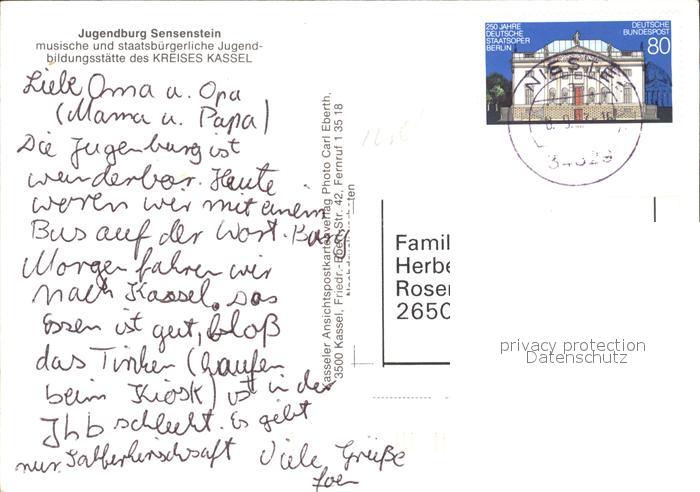 Jugendburg Sensenstein
musische und staatsbürgerliche Jugend-
bildungsstätte des KREISES KASSEL
Liebe Oma u. Opa
(Mama u. Papa)
Die Jugenburg ist
wunderbar. Heute
waren wir mit einem
Bus auf der Wart-Burg
Morgen fahren wir
nach Kassel. Das
Essen ist gut, bloß
das Tinken (kaufen
beim Kiosk) ist in der
Jhb schlecht. Es gibt
nur
Viele Grüße
Kasseler Ansichtspostkartenverlag Photo Carl Eberth,
3500 Kassel, Friedr.-Ebert-Str. 42, Fernruf 1 35 18
250 JAHRE
DEUTSCHE
STAATSOPER
BERLIN
DEUTSCHE
BUNDESPOST
80
34329
Famil
Herbe
Roser
2650
privacy protection
Datenschutz